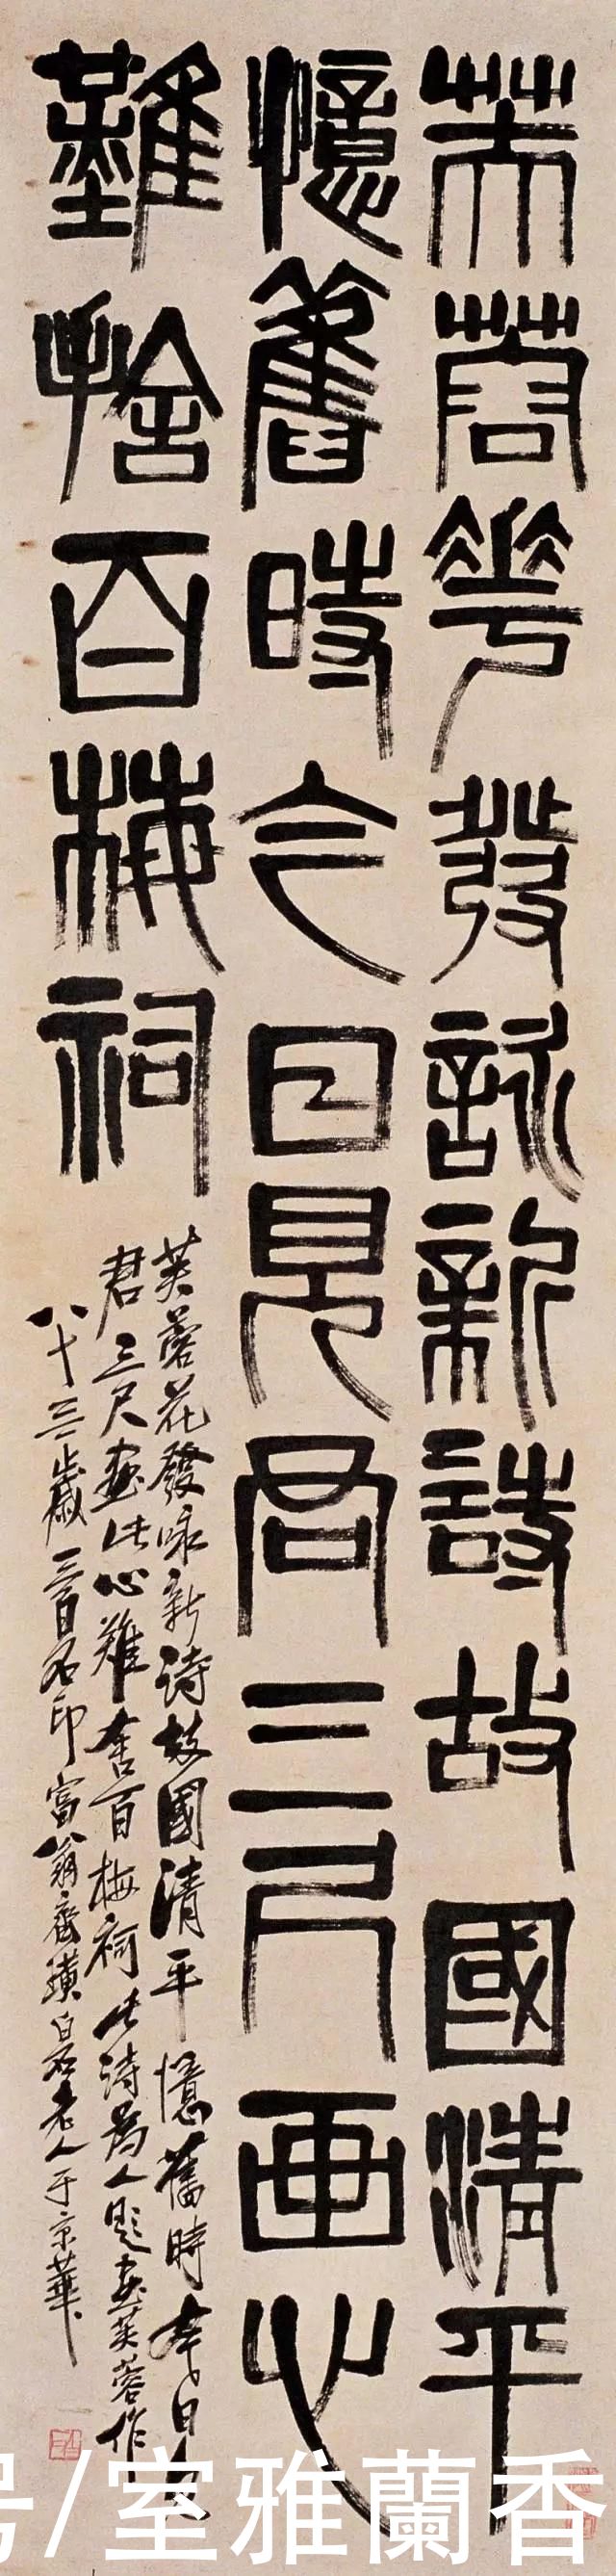 芙蓉花發詠新詩故國清平
憶舊時今日見君三尺画心
難捨百梅祠
芙蓉花發咏新詩故國清平憶舊時今日見
君三尺畫此心難舍百梅祠此詩為人題畫芙蓉作
八十三歲三百石印富翁齊璜白石老人于京華
号/室雅蘭香